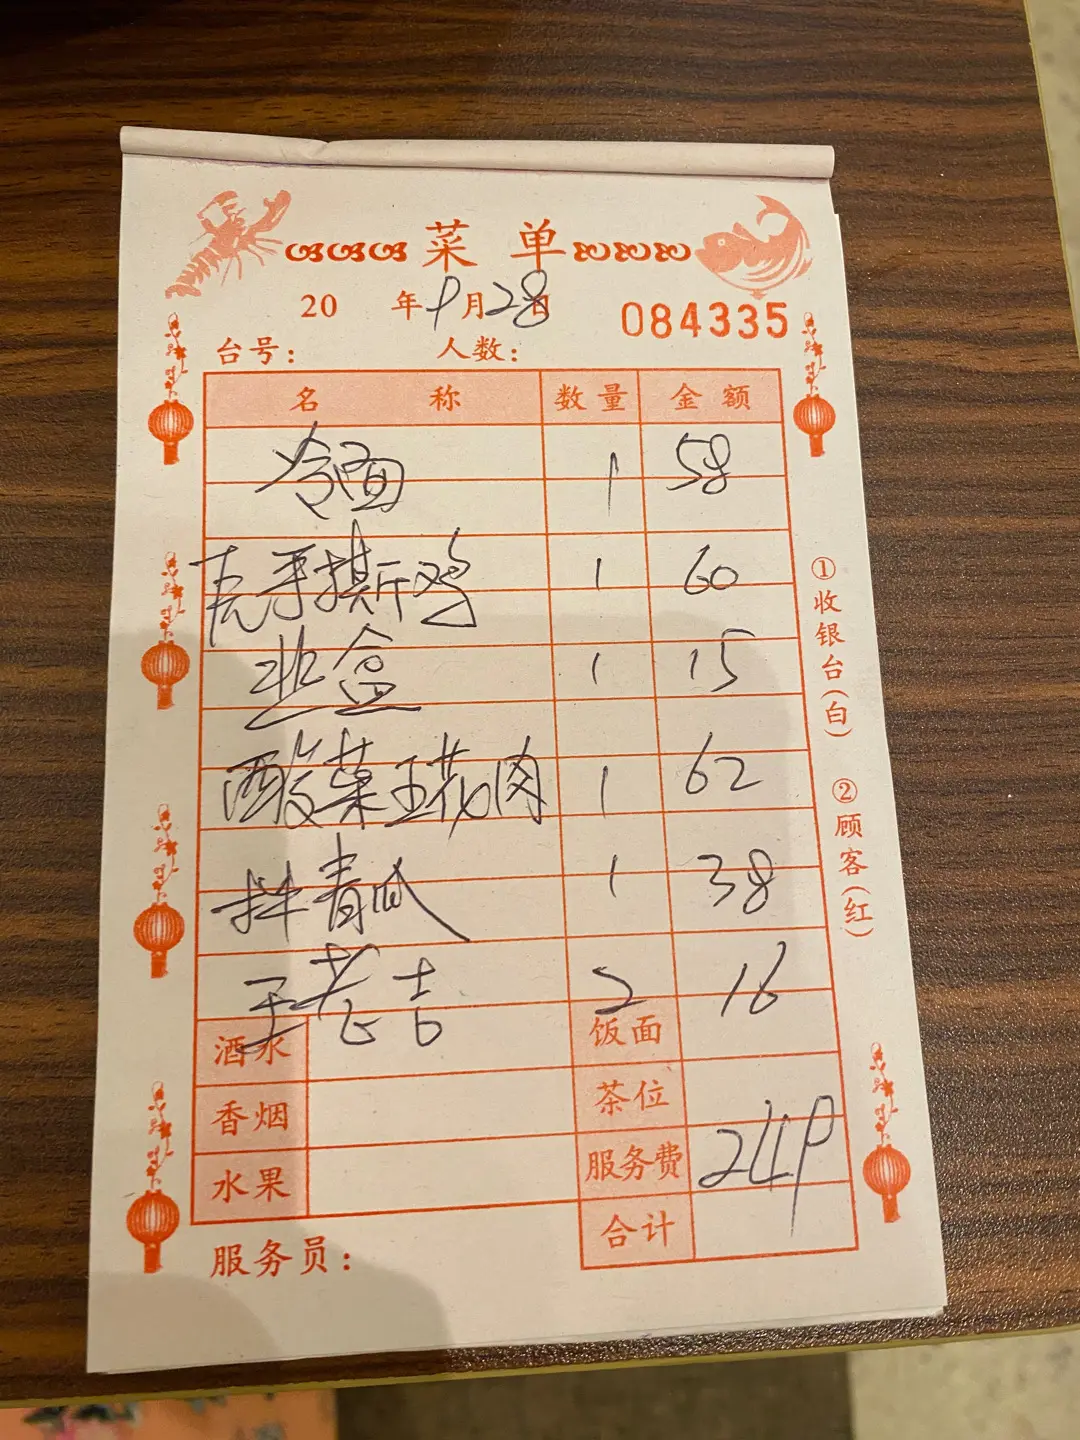 菜单
20 年9月28日
084335
台号: 人数:
名称 数量 金额
冷面 1 58
手撕鸡 1 60
韭盒 1 15
酸菜五花肉 1 62
拌青瓜 1 38
王老吉 2 16
酒水 饭面
香烟 茶位
水果 服务费 249
合计
服务员:
①收银台(白)
②顾客(红)